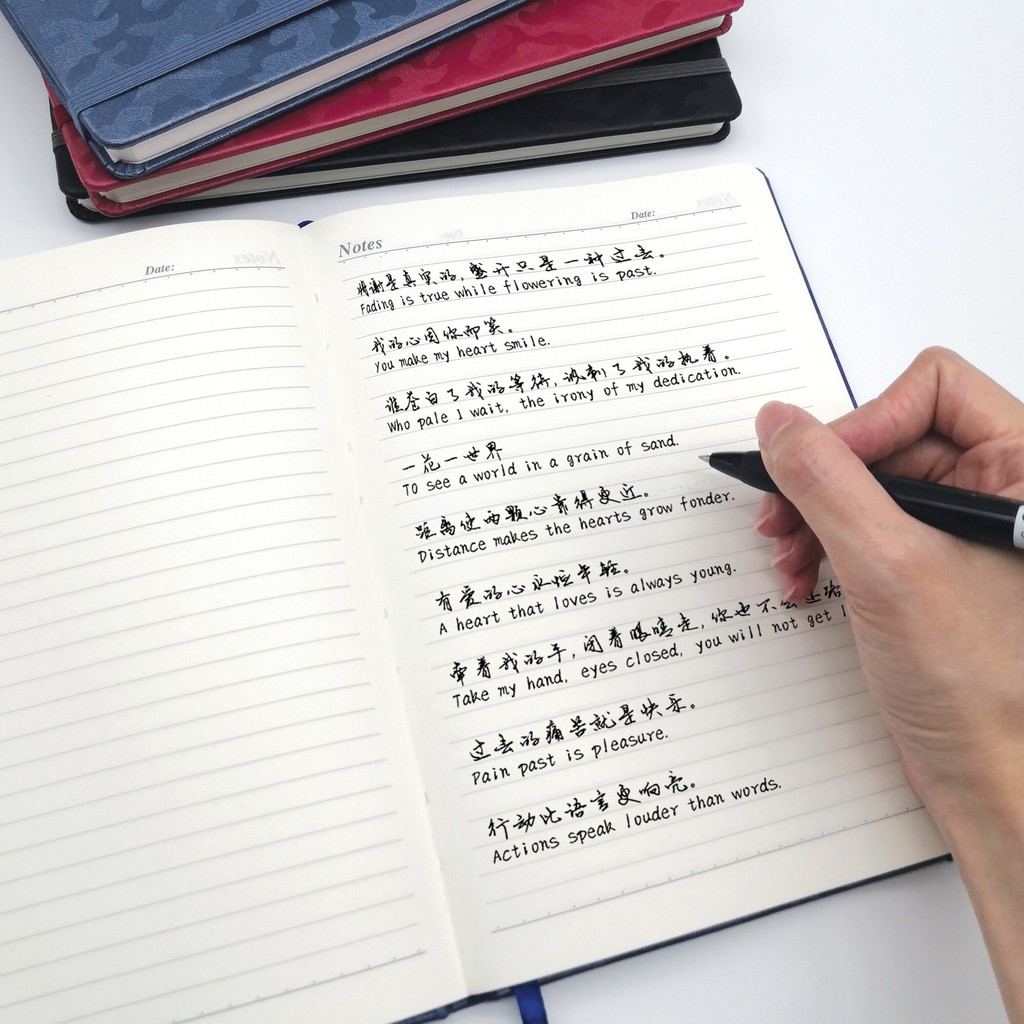 Date:
Notes
Date:
凋谢是真实的，盛开只是一种过去。
Fading is true while flowering is past.
我的心因你而笑。
You make my heart smile.
谁苍白了我的等待，讽刺了我的执着。
Who pale I wait, the irony of my dedication.
一花一世界
To see a world in a grain of sand.
距离使两颗心靠得更近。
Distance makes the hearts grow fonder.
有爱的心永恒年轻。
A heart that loves is always young.
牵着我的手，闭着眼睛走，你也不会迷路
Take my hand, eyes closed, you will not get l
过去的痛苦就是快乐。
Pain past is pleasure.
行动比语言更响亮。
Actions speak louder than words.